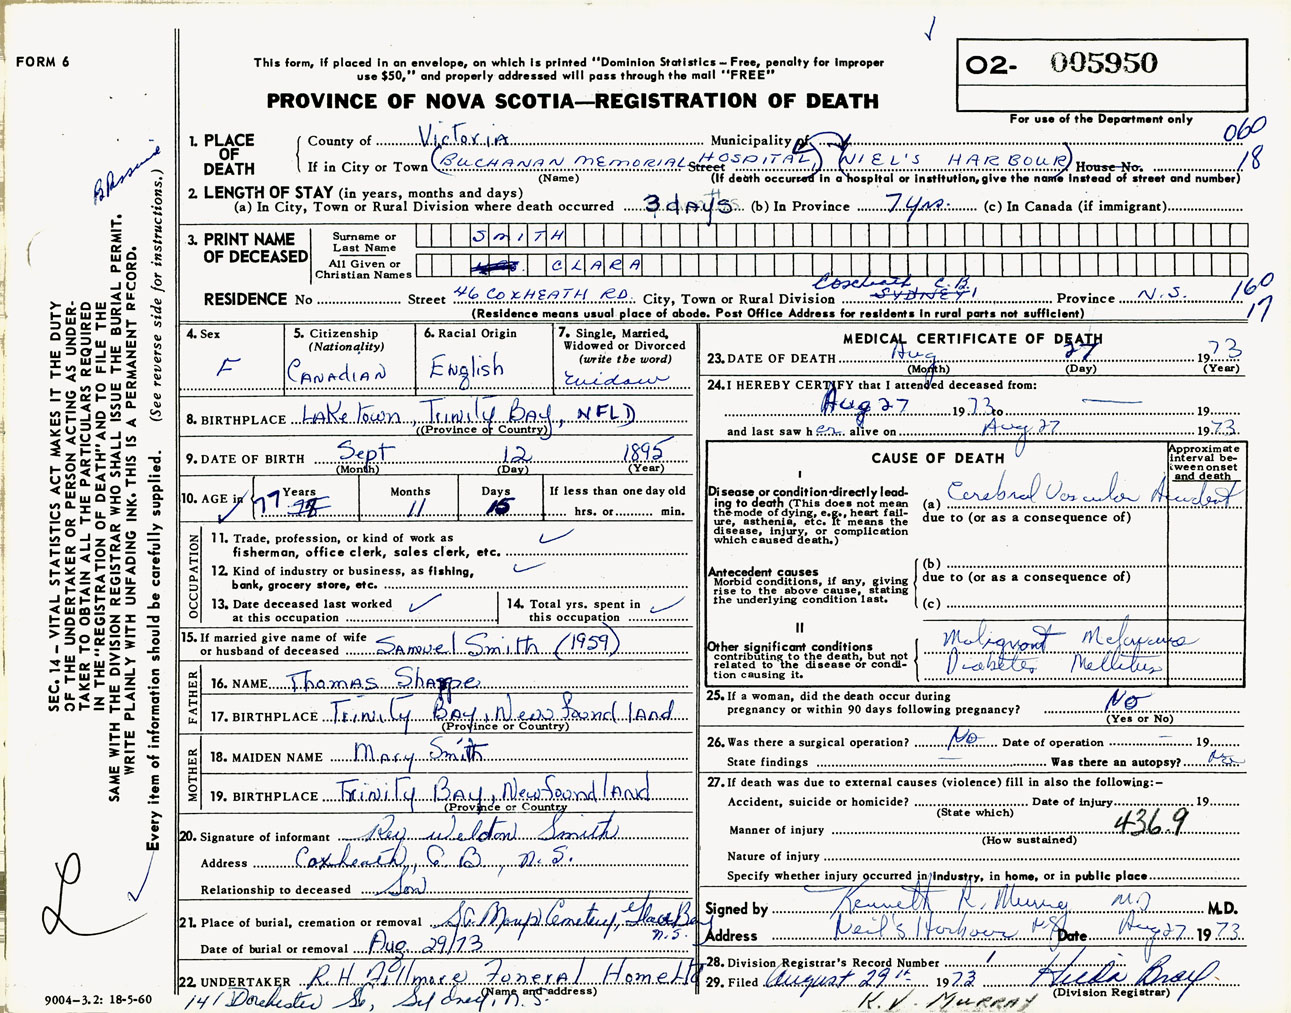 FORM 6
This form, if placed in an envelope, on which is printed "Dominion Statistics – Free, penalty for improper
use $50," and properly addressed will pass through the mail "FREE"
PROVINCE OF NOVA SCOTIA—REGISTRATION OF DEATH
02- 005950
For use of the Department only
060
18
1. PLACE OF DEATH
County of Victoria Municipality of
If in City or Town (BUCHANAN MEMORIAL HOSPITAL) Street (NIEL'S HARBOUR) House No.
(Name) (If death occurred in a hospital or institution, give the name instead of street and number)
2. LENGTH OF STAY (in years, months and days)
(a) In City, Town or Rural Division where death occurred 3 days (b) In Province 7 yrs. (c) In Canada (if immigrant)
3. PRINT NAME OF DECEASED
Surname or Last Name SMITH
All Given or Christian Names CLARA
RESIDENCE No Street 46 COXHEATH RD. City, Town or Rural Division Coxheath C.B. SYDNEY Province N.S.
160
17
(Residence means usual place of abode. Post Office Address for residents in rural parts not sufficient)
4. Sex F
5. Citizenship (Nationality) CANADIAN
6. Racial Origin English
7. Single, Married, Widowed or Divorced (write the word) widow
8. BIRTHPLACE LAKETOWN, TRINITY BAY, NFLD
(Province or Country)
9. DATE OF BIRTH Sept 12 1895
(Month) (Day) (Year)
10. AGE in 77 Years Months 11 Days 15 If less than one day old hrs. or min.
OCCUPATION
11. Trade, profession, or kind of work as fisherman, office clerk, sales clerk, etc.
12. Kind of industry or business, as fishing, bank, grocery store, etc.
13. Date deceased last worked at this occupation
14. Total yrs. spent in this occupation
15. If married give name of wife or husband of deceased Samuel Smith (1959)
FATHER
16. NAME Thomas Sharpe
17. BIRTHPLACE Trinity Bay, Newfoundland
(Province or Country)
MOTHER
18. MAIDEN NAME Mary Smith
19. BIRTHPLACE Trinity Bay, Newfoundland
(Province or Country
20. Signature of informant Rev Weldon Smith
Address Coxheath, C B, N.S.
Relationship to deceased Son
21. Place of burial, cremation or removal Cemetery, Glace Bay N.S.
Date of burial or removal Aug. 29/73
22. UNDERTAKER R.H. Fillmore Funeral Home Ltd
(Name and address)
141 Dorchester St, Sydney, N.S.
MEDICAL CERTIFICATE OF DEATH
23. DATE OF DEATH Aug 27 1973
(Month) (Day) (Year)
24. I HEREBY CERTIFY that I attended deceased from:
Aug 27 1973 to — 19
and last saw her alive on Aug 27 1973
CAUSE OF DEATH
Approximate interval between onset and death
I
Disease or condition directly leading to death (This does not mean the mode of dying, e.g., heart failure, asthenia, etc. It means the disease, injury, or complication which caused death.)
(a) Cerebral Vascular Accident
due to (or as a consequence of)
Antecedent causes
Morbid conditions, if any, giving rise to the above cause, stating the underlying condition last.
(b)
due to (or as a consequence of)
(c)
II
Other significant conditions
contributing to the death, but not related to the disease or condition causing it.
Malignant Melanoma
Diabetes Mellitus
25. If a woman, did the death occur during pregnancy or within 90 days following pregnancy? No
(Yes or No)
26. Was there a surgical operation? No Date of operation — 19
State findings — Was there an autopsy? No
27. If death was due to external causes (violence) fill in also the following:–
Accident, suicide or homicide? Date of injury 19
(State which)
Manner of injury 436.9
(How sustained)
Nature of injury
Specify whether injury occurred in industry, in home, or in public place
Signed by Kenneth R. Murray M.D M.D.
Address Neil's Harbour N.S. Date Aug 27 1973
28. Division Registrar's Record Number 1
29. Filed August 29th 1973 Hilda Bray
(Division Registrar)
K. V. MURRAY
SEC. 14 – VITAL STATISTICS ACT MAKES IT THE DUTY
OF THE UNDERTAKER OR PERSON ACTING AS UNDER-
TAKER TO OBTAIN ALL THE PARTICULARS REQUIRED
IN THE "REGISTRATION OF DEATH" AND TO FILE THE
SAME WITH THE DIVISION REGISTRAR WHO SHALL ISSUE THE BURIAL PERMIT.
WRITE PLAINLY WITH UNFADING INK. THIS IS A PERMANENT RECORD.
Every item of information should be carefully supplied. (See reverse side for instructions.)
9004-3.2: 18-5-60